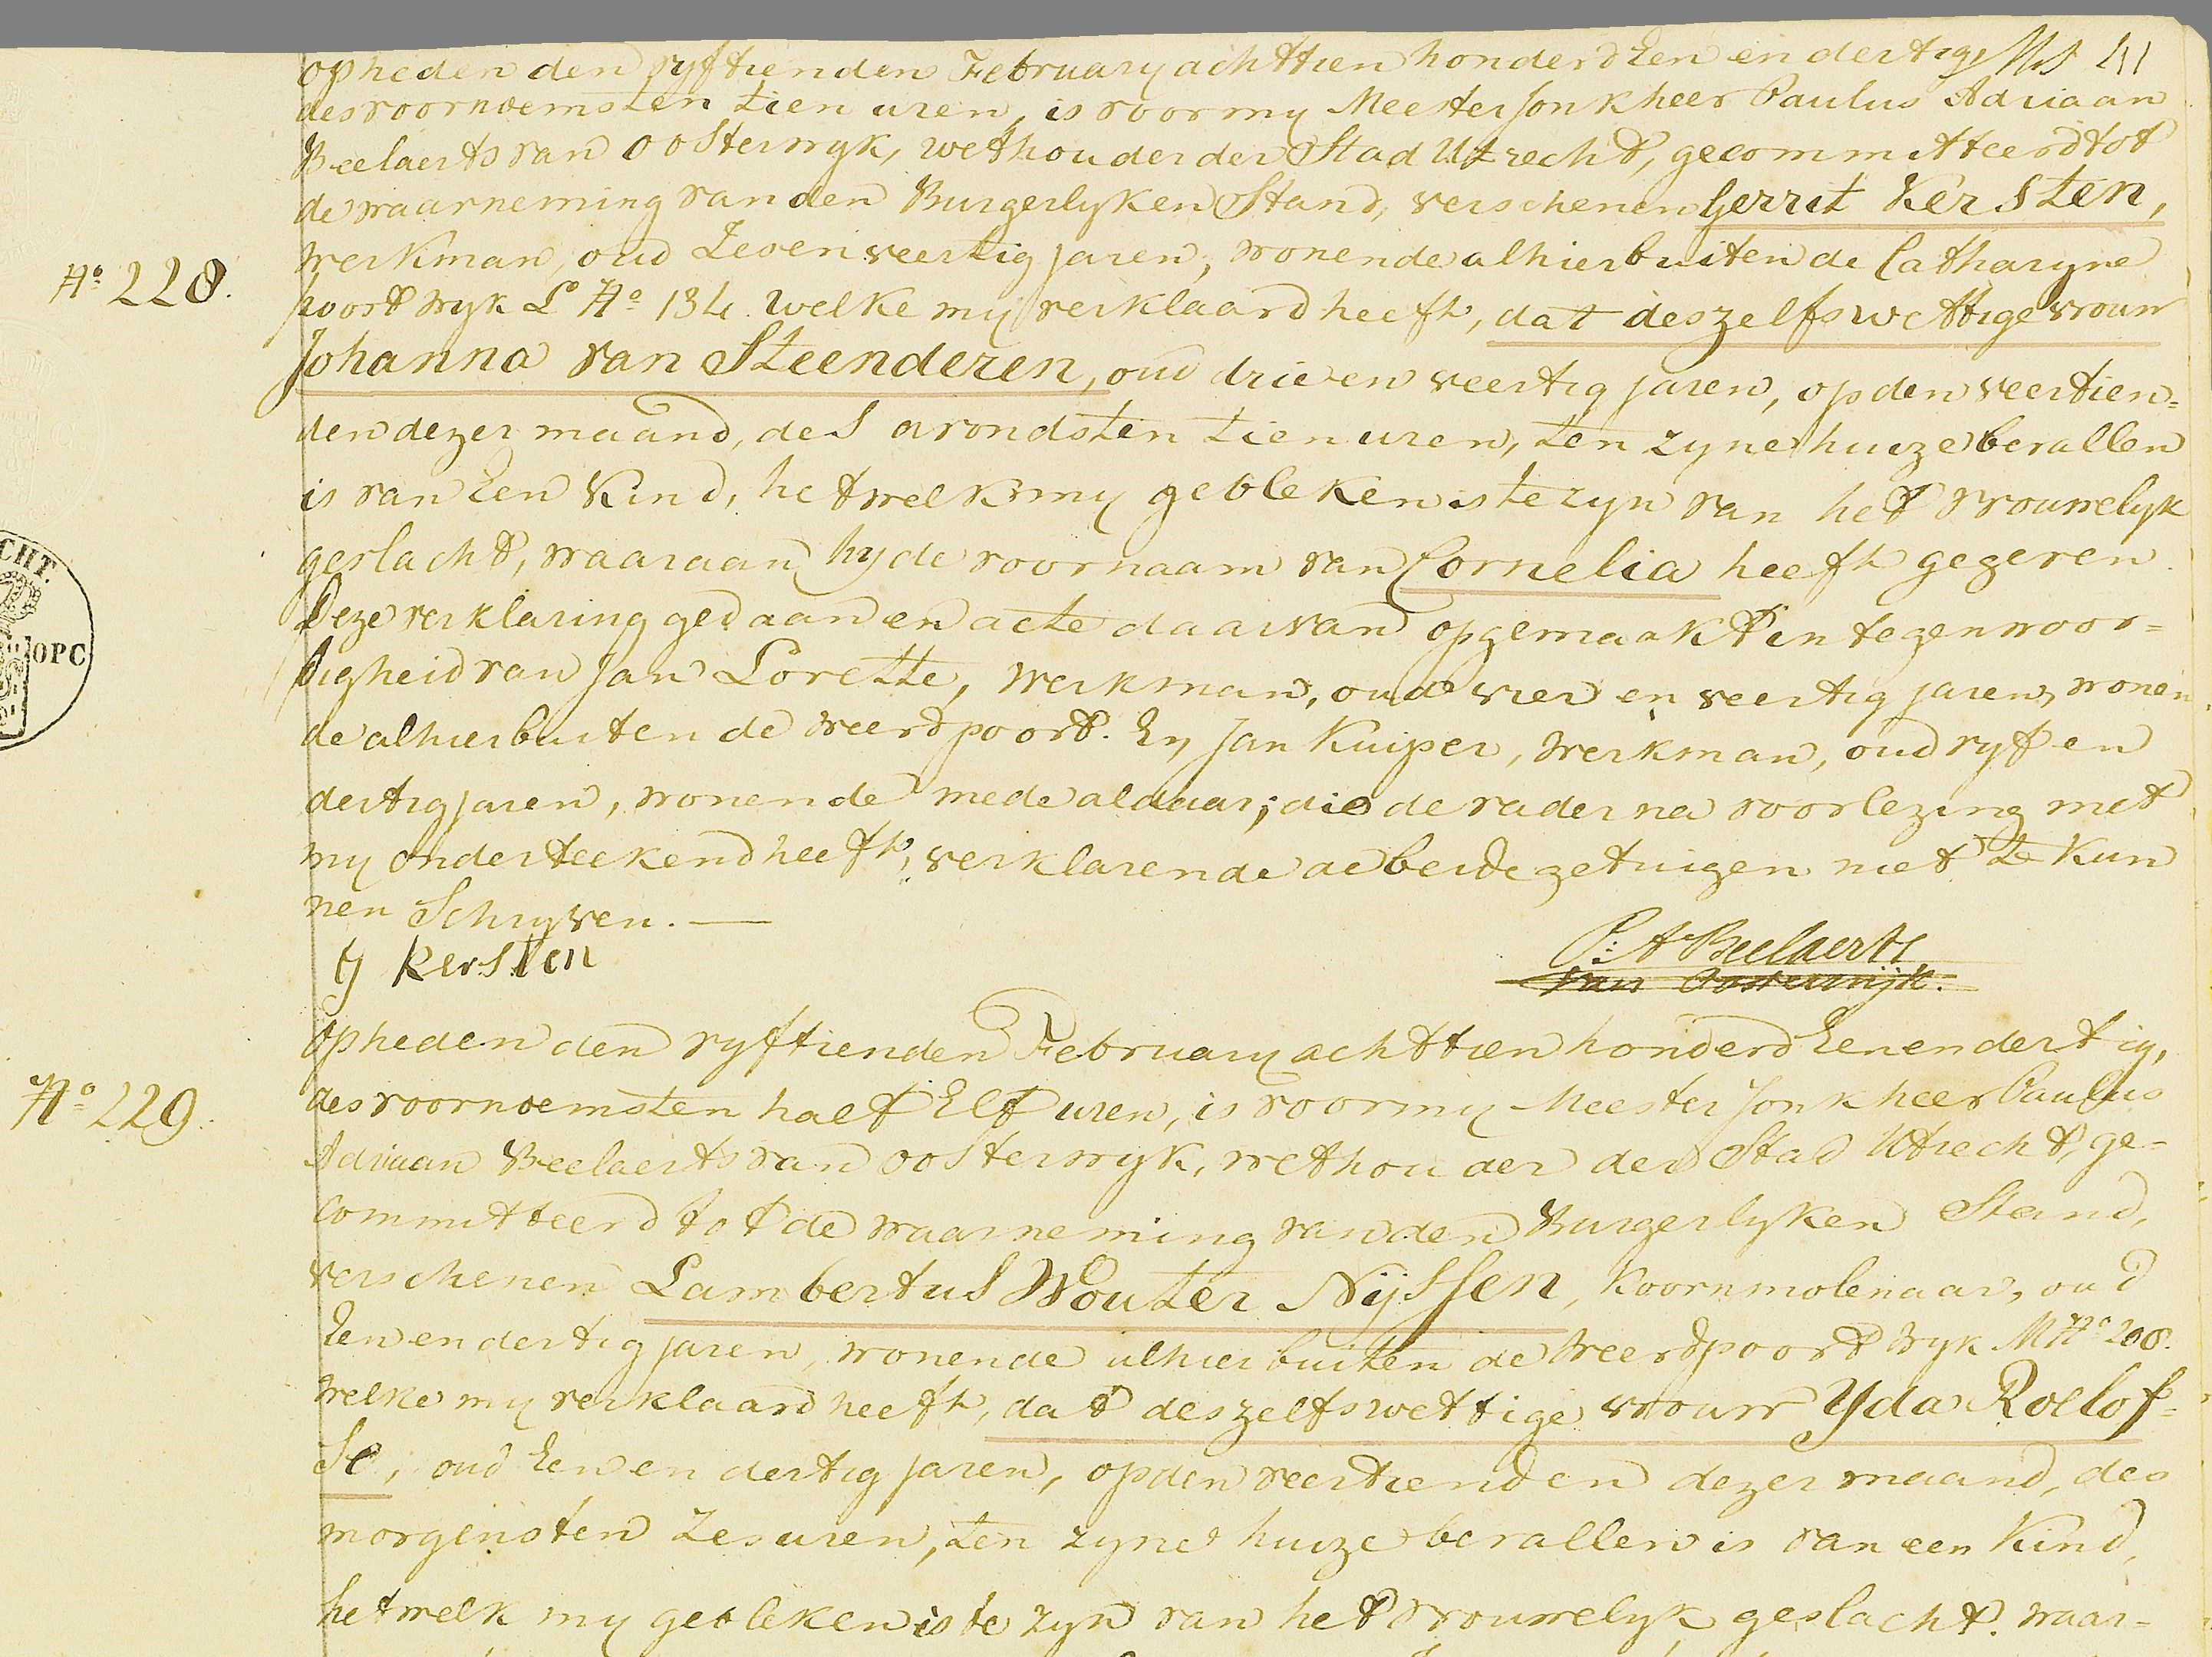 Op heden den vyftienden February achttien honderd Een en dertig,
des voornoemsten tien uren, is voor my Meester Jonkheer Paulus Adriaan
Beelaerts van Oosterwyk, wethouder der Stad Utrecht, gecommitteerd tot
de waarneming van den Burgerlyken Stand, verschenen Gerrit Kersten,
Nº 228.
werkman, oud Zeven veertig jaren, wonende alhier buiten de Catharyne
poort wyk L Nº 134. welke my verklaard heeft, dat deszelfs wettige vrouw
Johanna van Steenderen, oud drie en veertig jaren, op den veertien=
den dezer maand, des avondsten tien uren, ten zynen huize bevallen
is van Een Kind, het welk my gebleken is te zyn van het vrouwelyk
geslacht, waaraan hy de voornaam van Cornelia heeft gegeven.
Deze verklaring gedaan en acte daarvan opgemaakt in tegenwoor=
digheid van Jan Lorette, werkman, oud vier en veertig jaren, wonen
de alhier buiten de weerdpoort. En Jan Kuiper, werkman, oud vyf en
dertig jaren, wonende mede aldaar; die de vader na voorlezing met
my onderteekend heeft, verklarende de beide getuigen niet te kun
nen Schryven. —
CHT.
OPC
G Kersten
P: A Beelaerts
van Oosterwijk.
Op heden den vyftienden February achttien honderd Een en dertig,
Nº 229.
des voornoemsten half Elf uren, is voor my Meester Jonkheer Paulus
Adriaan Beelaerts van Oosterwyk, wethouder der Stad Utrecht, ge=
committeerd tot de waarneming van den Burgerlyken Stand,
verschenen Lambertus Wouter Nijssen, Koornmolenaar, oud
Een en dertig jaren, wonende alhier buiten de Weerdpoort wyk M Nº 208.
welke my verklaard heeft, dat deszelfs wettige vrouw Yda Roelof=
se, oud Een en dertig jaren, op den veertienden dezer maand, des
morgensten Zes uren, ten zynen huize bevallen is van een Kind,
het welk my gebleken is te zyn van het vrouwelyk geslacht. waar=